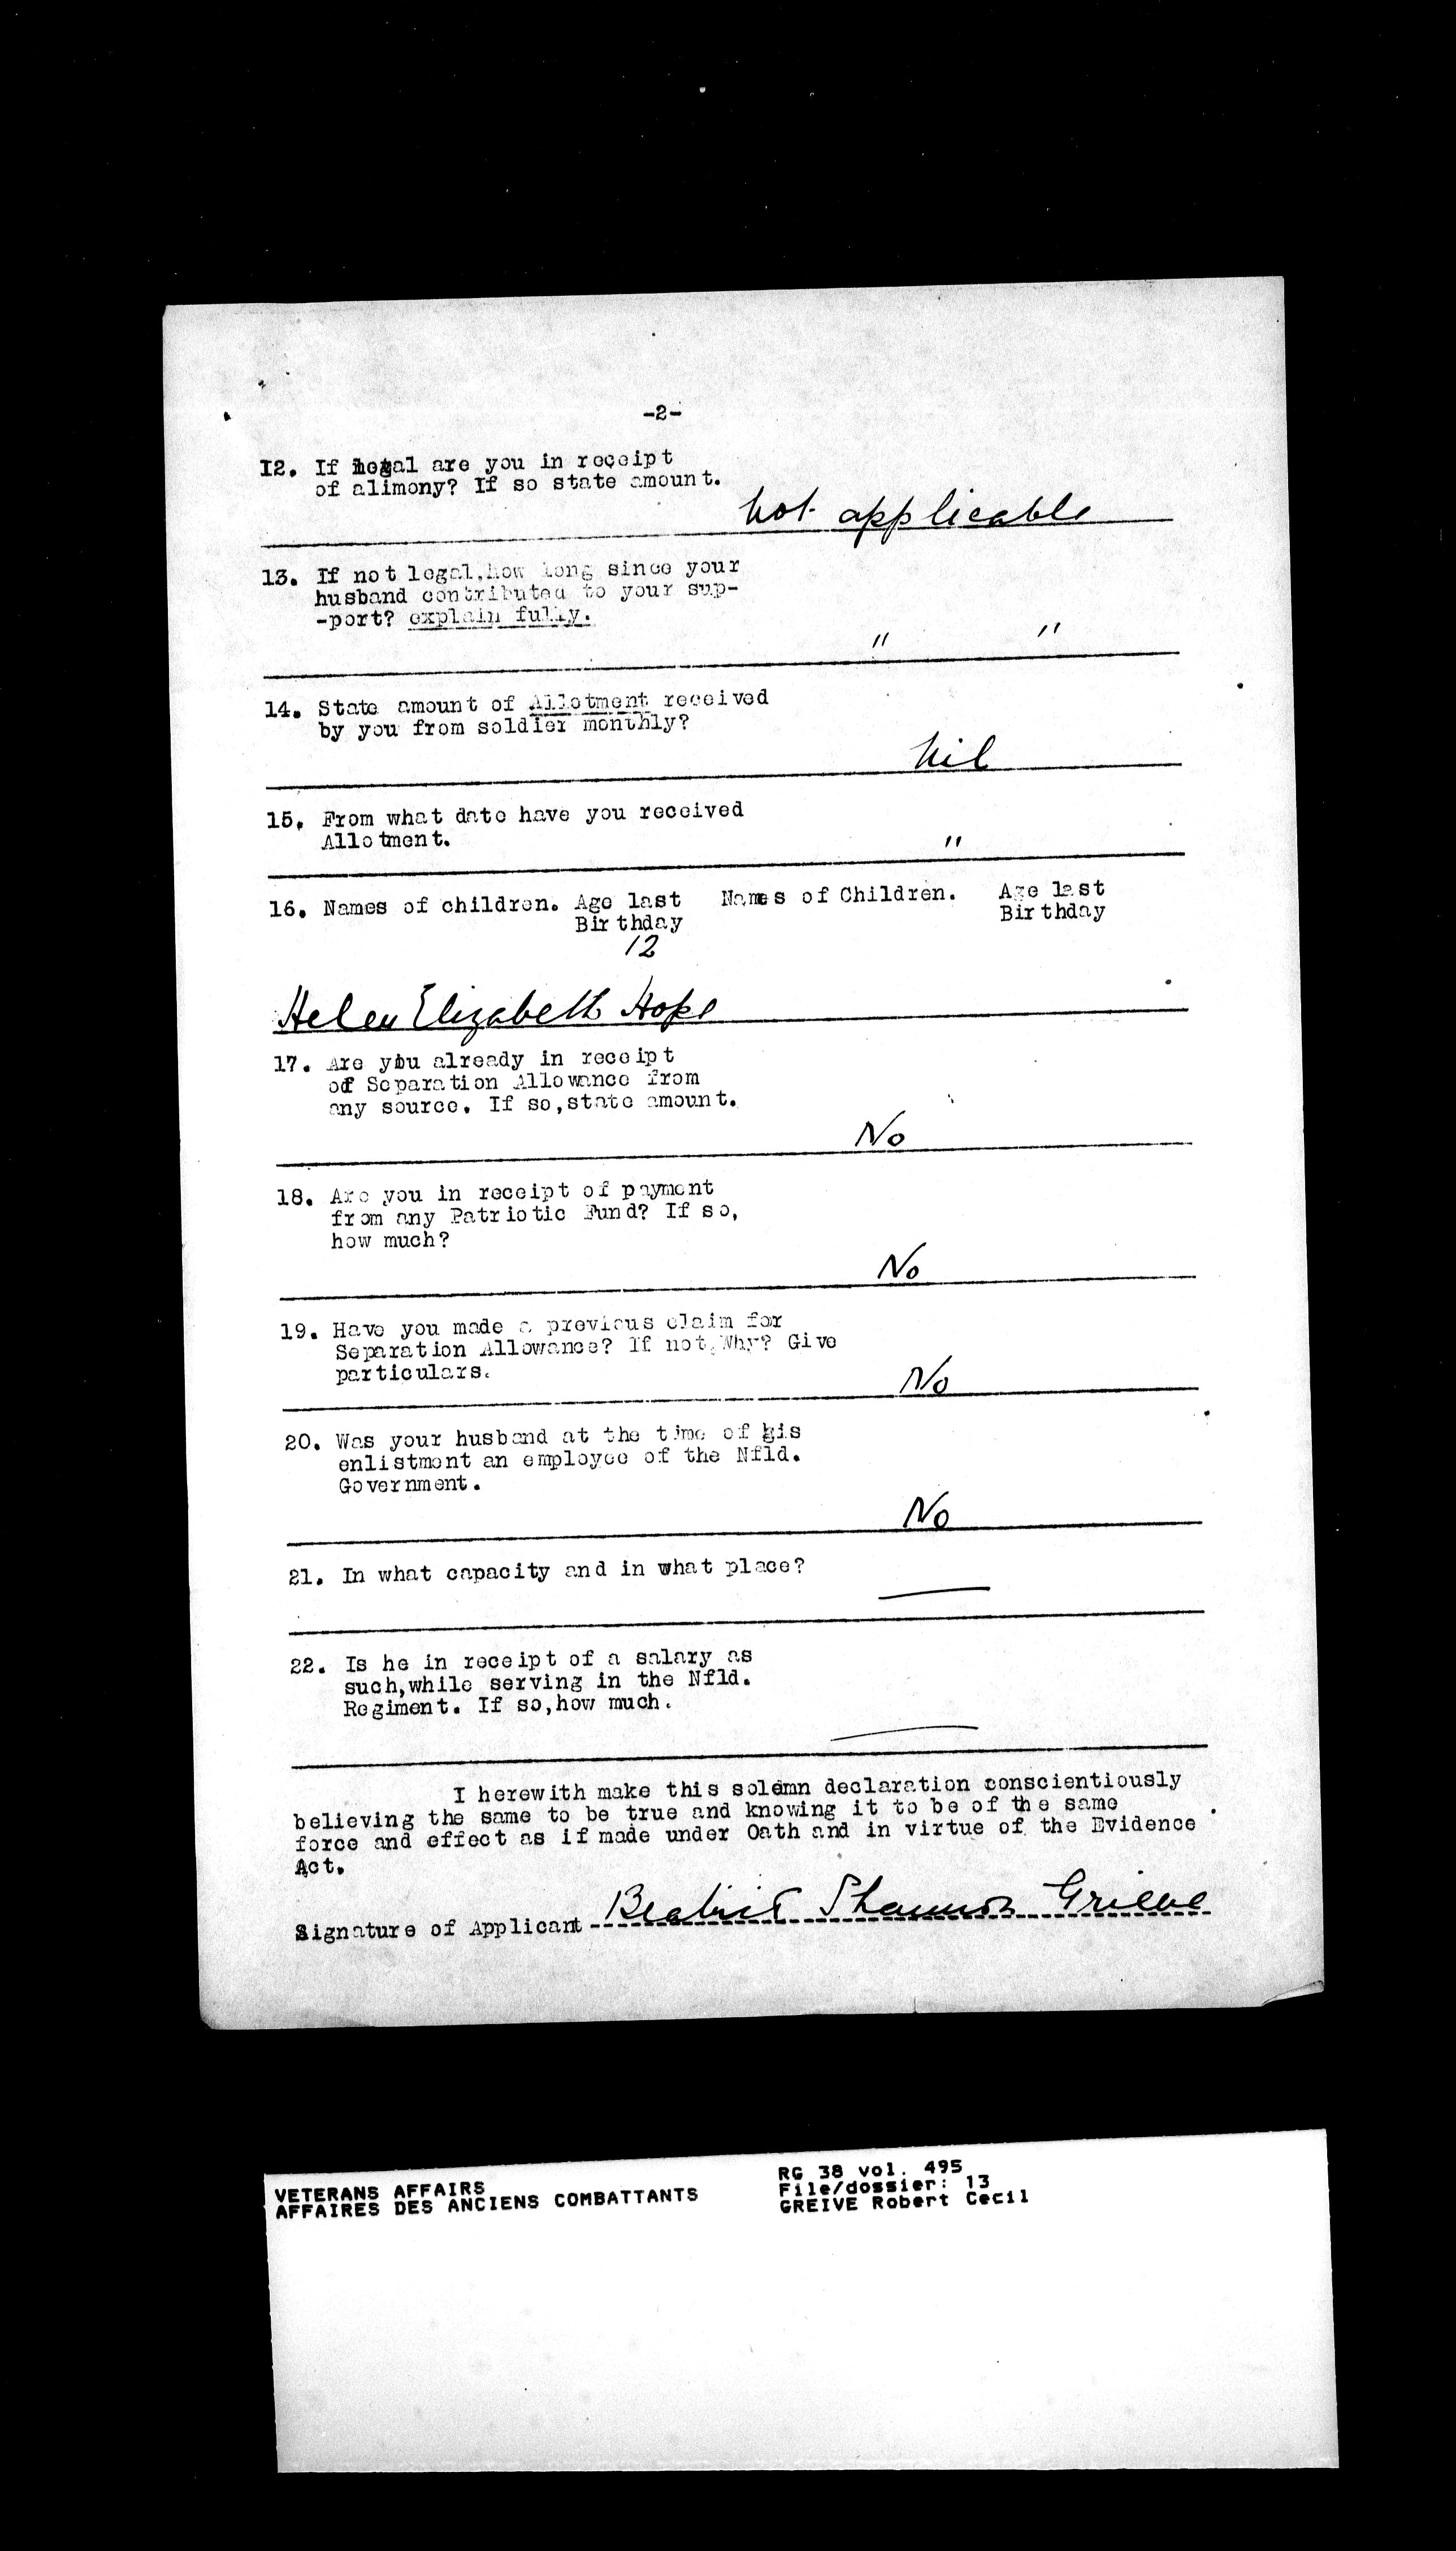 -2-
12. If legal are you in receipt
of alimony? If so state amount.
Not applicable
13. If not legal, how long since your
husband contributed to your sup-
-port? explain fully.
" "
14. State amount of Allotment received
by you from soldier monthly?
Nil
15. From what date have you received
Allotment.
"
16. Names of children. Age last Names of Children. Age last
Birthday Birthday
12
Helen Elizabeth Hope
17. Are you already in receipt
of Separation Allowance from
any source. If so, state amount.
No
18. Are you in receipt of payment
from any Patriotic Fund? If so,
how much?
No
19. Have you made a previous claim for
Separation Allowance? If not, Why? Give
particulars.
No
20. Was your husband at the time of his
enlistment an employee of the Nfld.
Government.
No
21. In what capacity and in what place?
22. Is he in receipt of a salary as
such, while serving in the Nfld.
Regiment. If so, how much.
I herewith make this solemn declaration conscientiously
believing the same to be true and knowing it to be of the same
force and effect as if made under Oath and in virtue of the Evidence
Act.
Signature of Applicant Beatrice Shannon Grieve
VETERANS AFFAIRS
AFFAIRES DES ANCIENS COMBATTANTS
RG 38 vol. 495
File/dossier: 13
GREIVE Robert Cecil